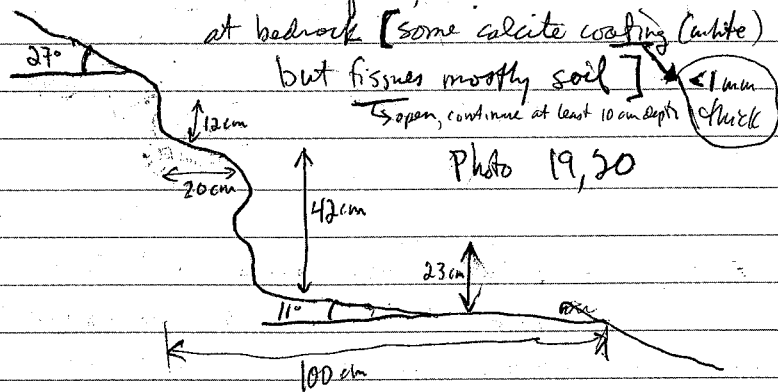 at bedrock [some calcite coating (white)
but fissues mostly soil]
<1mm thick
↳open, continue at least 10 cm depth
Photo 19, 20
27°
12cm
20cm
42cm
23cm
11°
100cm